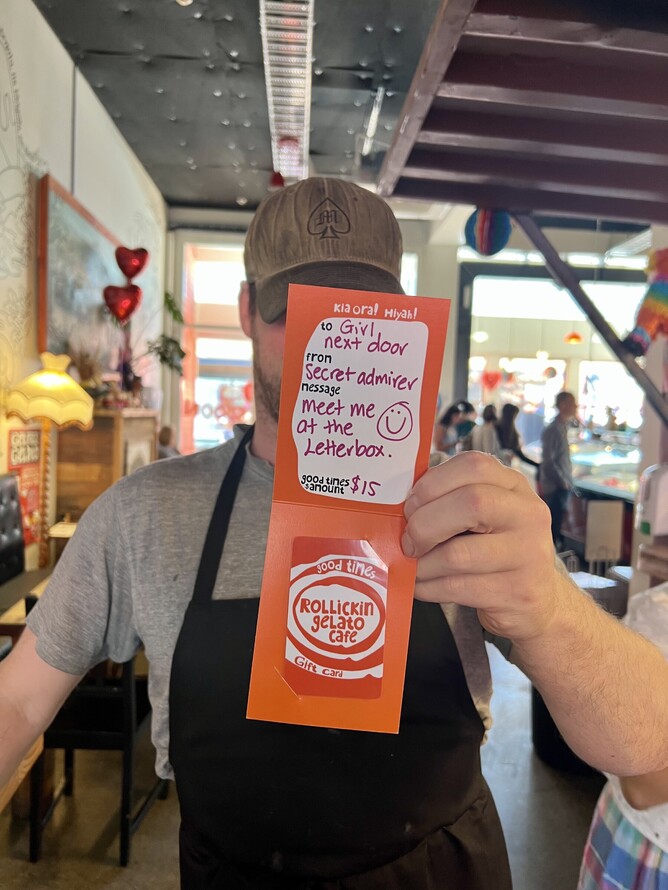 Kia ora! Hiyah!
to Girl
next door
from
Secret admirer
message
Meet me
at the
Letterbox.
good times
& amount $15
good times
Rollickin
gelato
cafe
Gift card
M